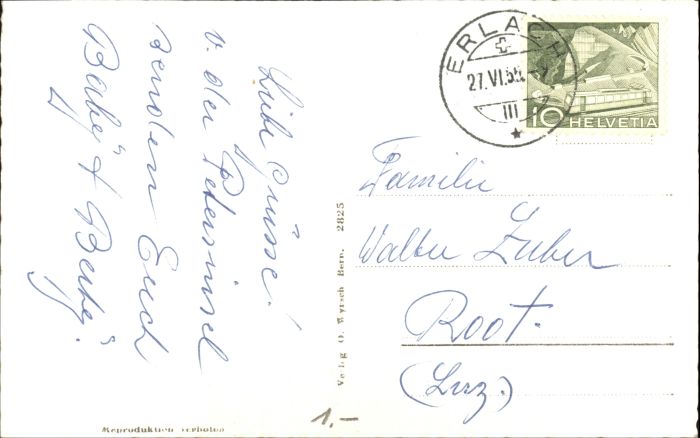 Liebe Grüsse!
v. der Petersinsel
senden Euch
Berty.
ERLACH
27.VI.55
III
10 HELVETIA
Familie
Walter Zuber
Root.
(Luz.)
Verlag O. Wyrsch Bern. 2825
Reproduktion verboten
1.-